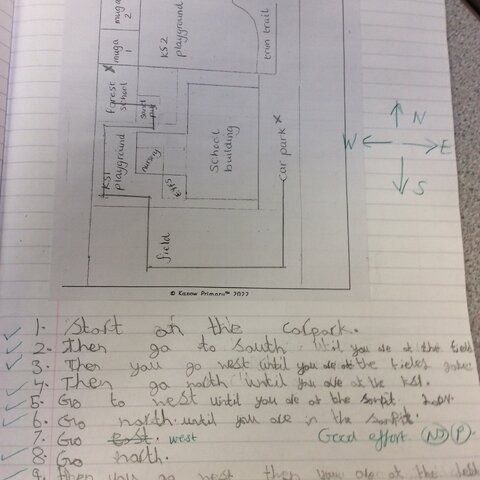 muga 2
muga 1
KS2 playground
trim trail
forest school
sand pit
KS1 playground
nursery
EYFS
school building
car park X
field
N
W E
S
© Kazow Primary™ 2022
1. Start on the carpark.
2. Then go to south until you are at the field
3. Then you go west until you are at the fields
4. Then go north until you are at the KS1.
5. Go to west until you are at the
6. Go north until you are in the
7. Go east. west Good effort. NS P
8. Go north.
9. Then you go west then you are at the